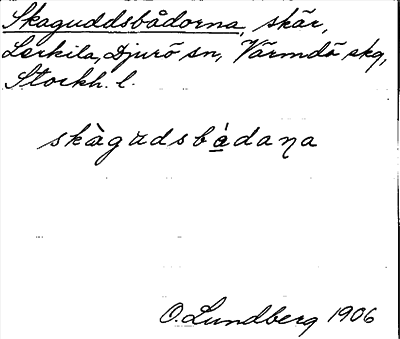 Skaguddsbådorna, skär,
Lerkila, Djurö sn, Värmdö skg,
Stockh. l.
skàgudsbådaŋa
O. Lundberg 1906